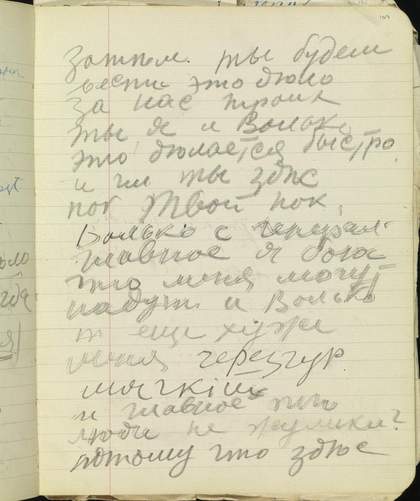 затем. ты будеш
вести это дело
за нас троих
ты я и Волько
это делается быстро
и ты здес
твой
Волько с
главное я боюс
что меня могут
надут и Волько
еще хуже
меня черезчур
мягкiй
и главное что
люди не жулики?
потому что здес